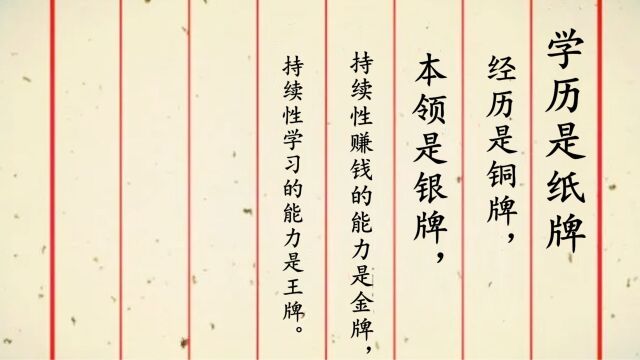 学历是纸牌
经历是铜牌，
本领是银牌，
持续性赚钱的能力是金牌，
持续性学习的能力是王牌。